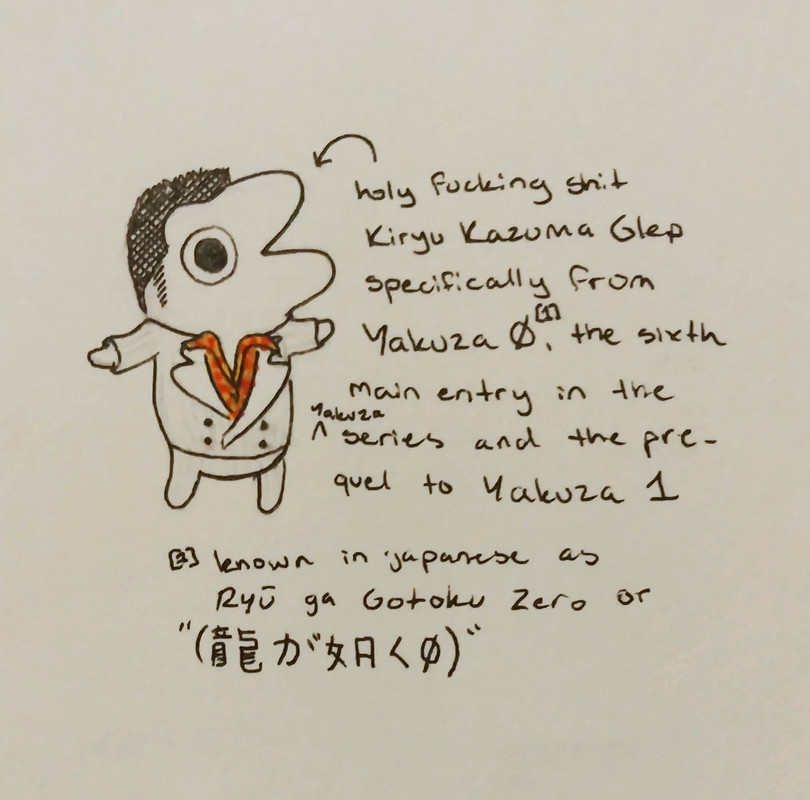 holy fucking shit
Kiryu Kazuma Glep
specifically from
Yakuza Ø[1], the sixth
main entry in the
Yakuza
^ series and the pre-
quel to Yakuza 1
[1] known in japanese as
Ryū ga Gotoku Zero or
"(龍が如くØ)"